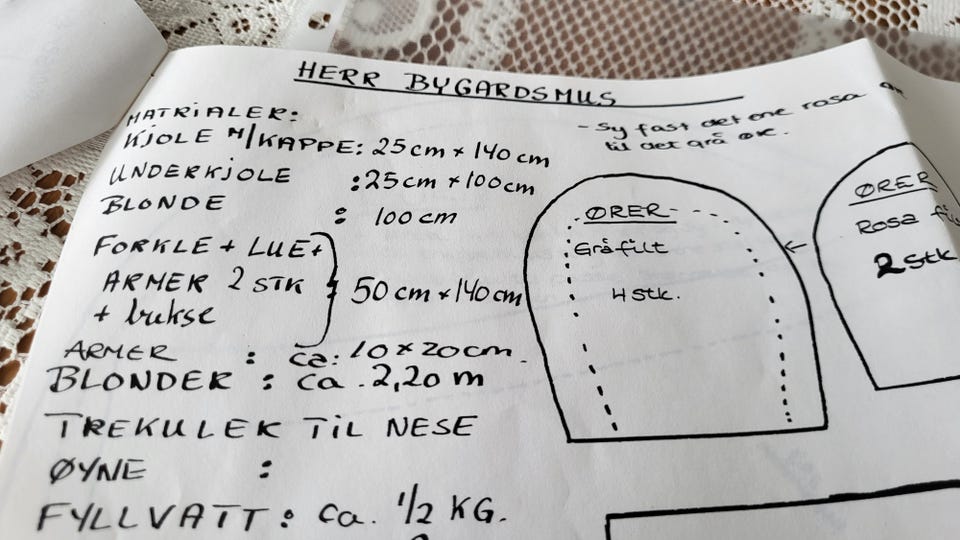 HERR BYGARDSMUS
MATRIALER:
KJOLE M/KAPPE: 25 cm × 140 cm
UNDERKJOLE : 25 cm × 100 cm
BLONDE : 100 cm
FORKLE + LUE +
ARMER 2 STK
+ bukse
50 cm × 140 cm
ARMER : ca: 10 × 20 cm.
BLONDER : ca. 2,20 m
TREKULER TIL NESE
ØYNE :
FYLLVATT: ca. 1/2 KG.
- Sy fast det ene rosa
til det grå øre.
ØRER
Grå filt
4 stk.
ØRER
Rosa
2 stk